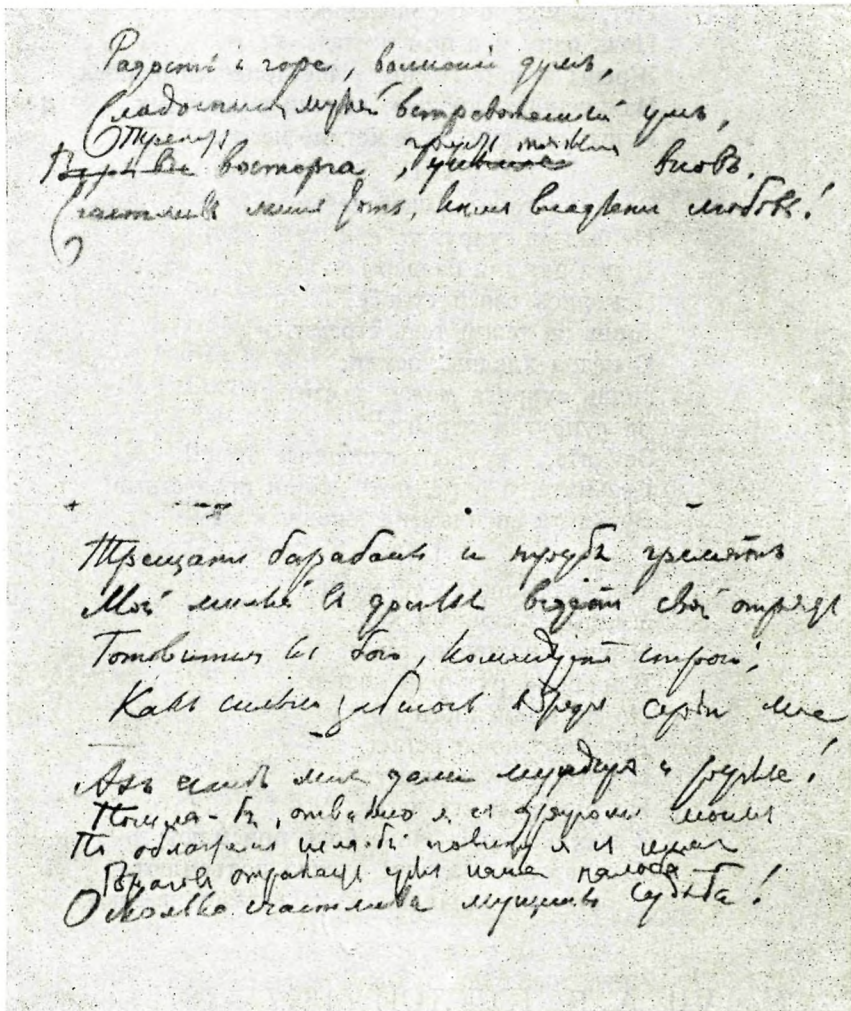 Радость и горе, волненье думъ,
Сладостной мукой встревоженный умъ,
Трепетъ грусть тяжкая
восторга, вновь,
Счастливъ лишь тотъ, кѣмъ владѣетъ любовь!
Трещатъ барабаны и трубы гремятъ
Мой милый въ доспѣхѣ ведетъ свой отрядъ
Готовится къ бою, командуетъ строю,
Какъ сильно забилось въ груди сердце мое
Ахъ еслибъ мнѣ дали мундиръ и ружье!
Пошла-бъ, отважно я съ другомъ моимъ
По областямъ шла-бъ повсюду я съ нимъ
Враговъ отражаетъ ужъ наша пальба
О сколько счастлива мущинъ судьба!